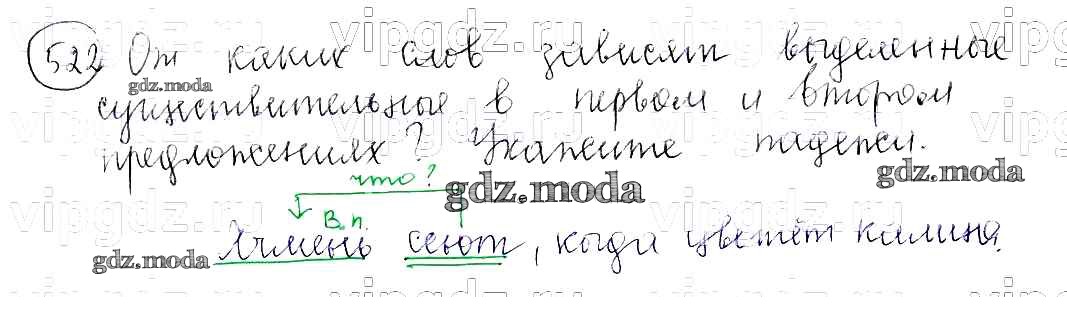 522 От каких слов зависят выделенные
существительные в первом и втором
предложениях? Укажите падежи.
что?
В.п.
Ячмень сеют, когда цветёт калина.
vipgdz.ru
gdz.moda